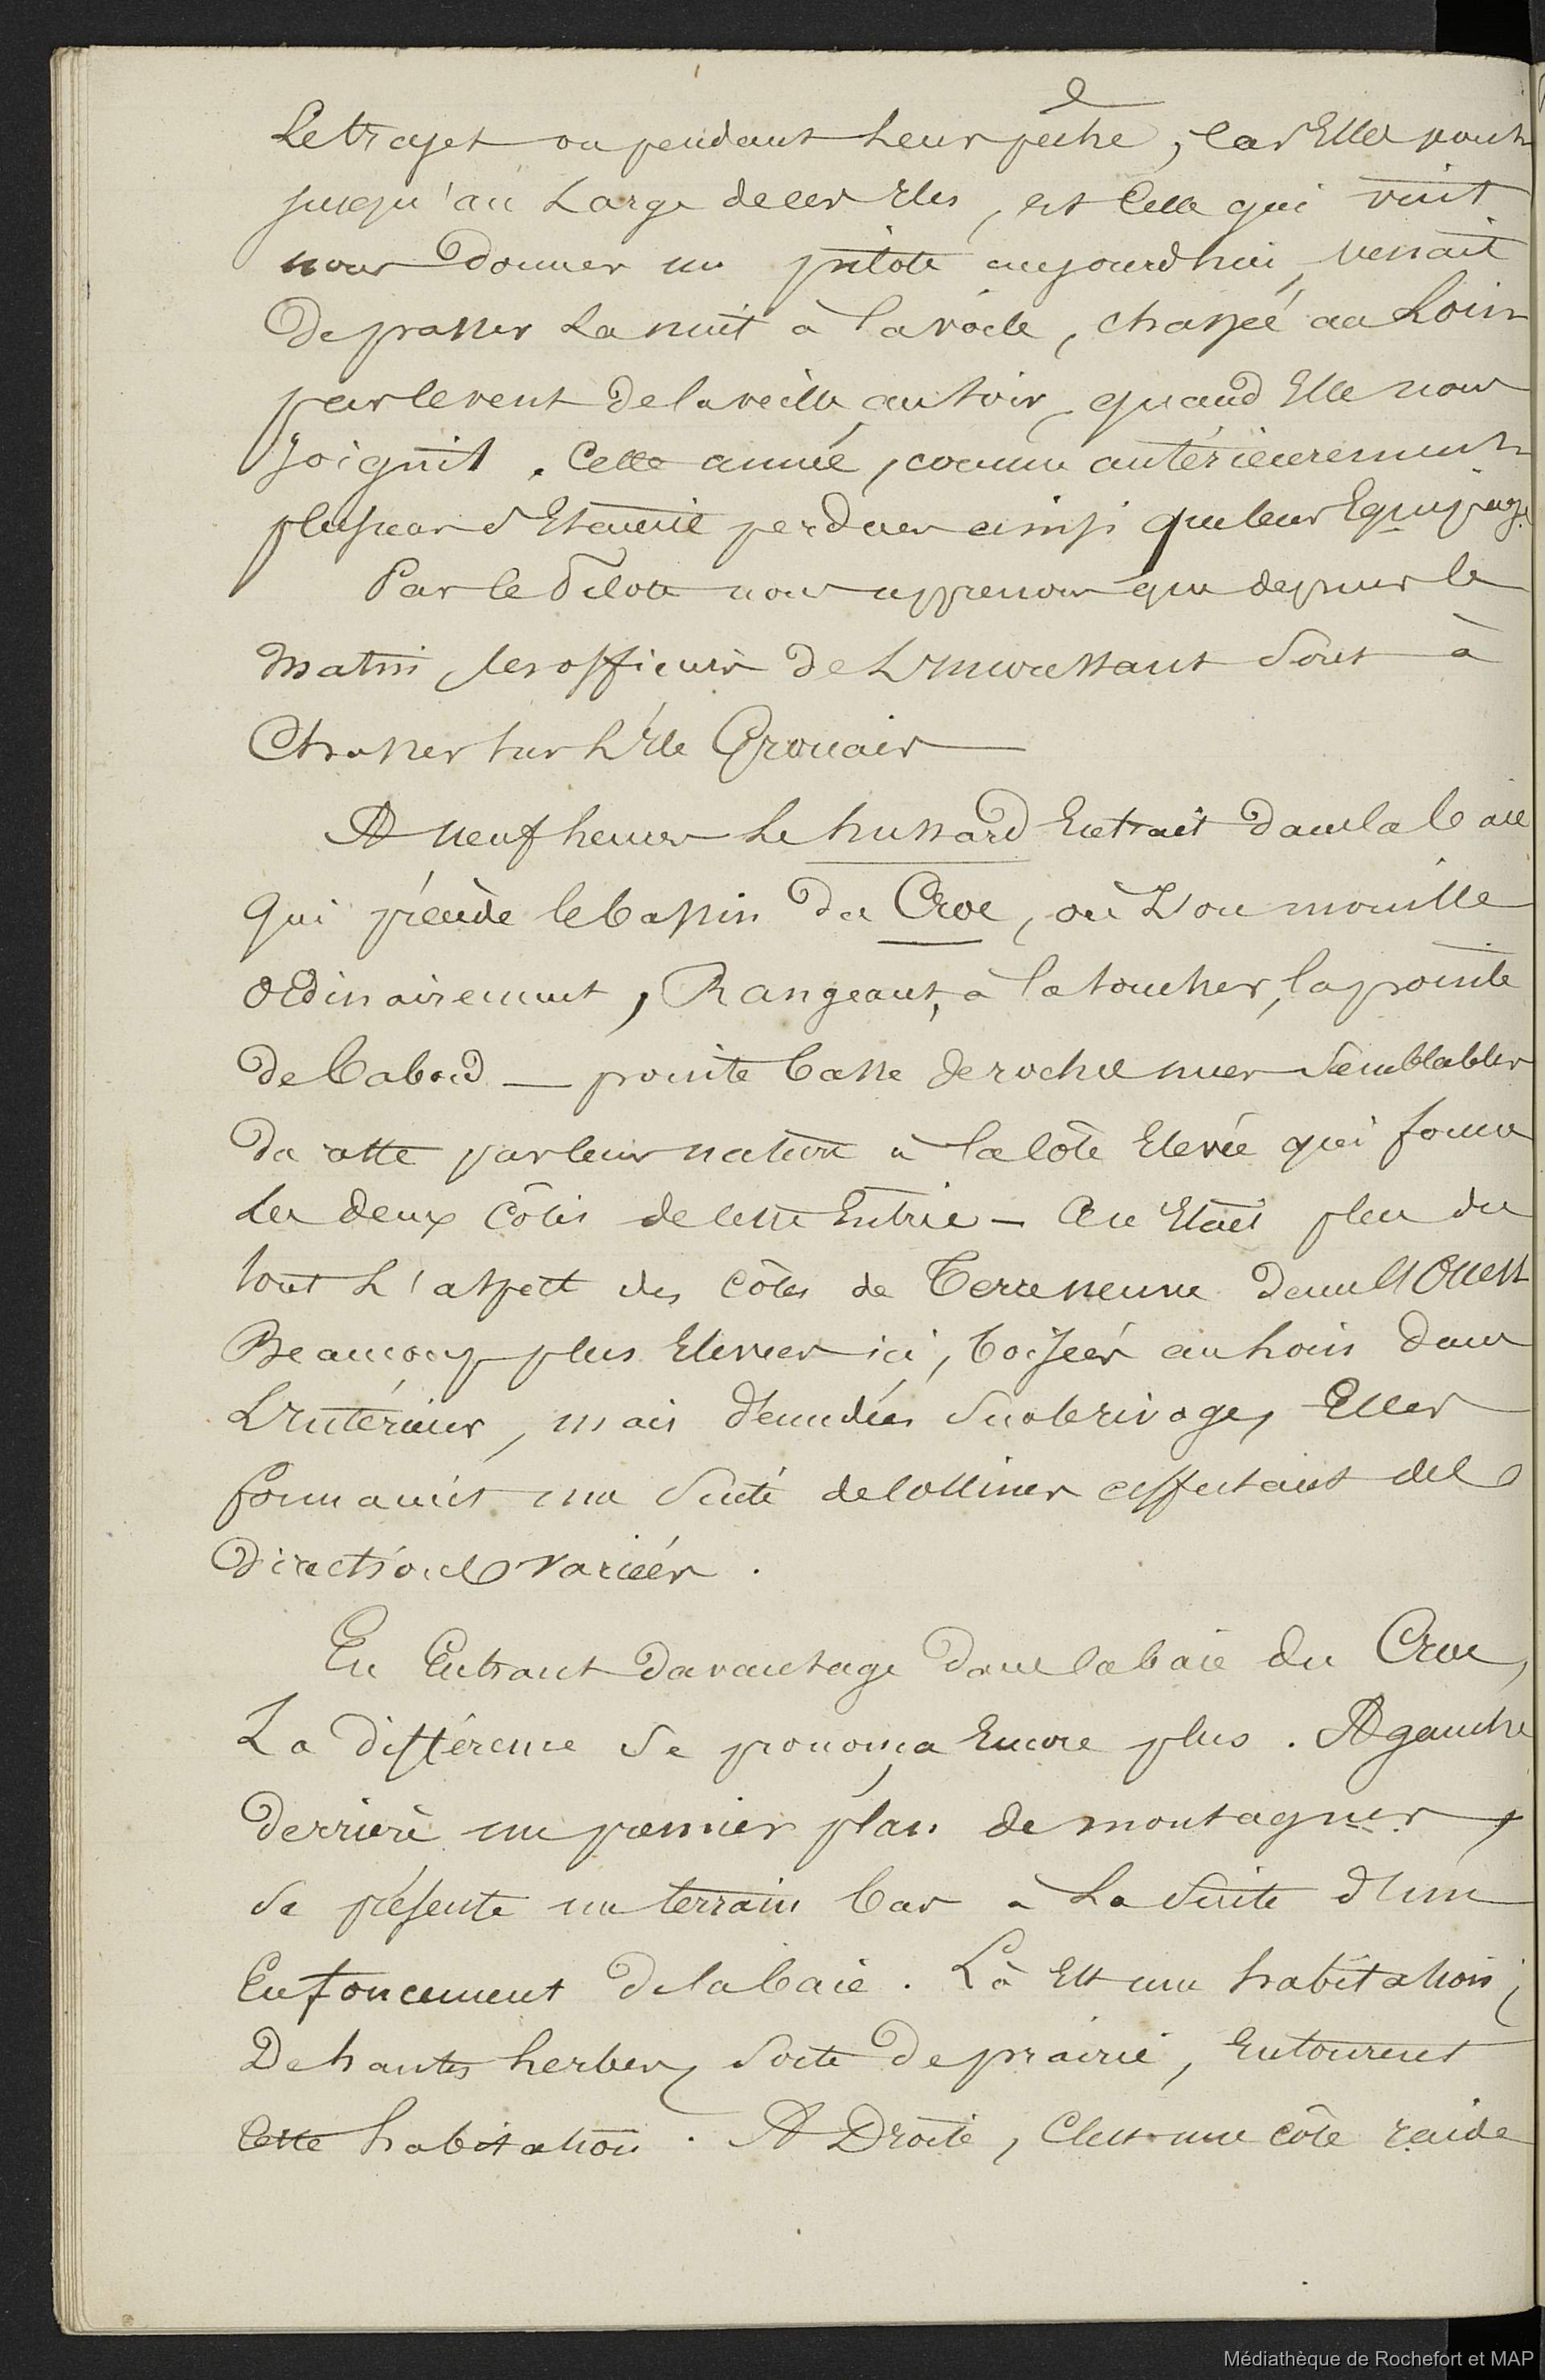 Le trajet ou pendant leur pêche, car Elles vont
jusqu'au Large de ces Iles, et Celle qui vint
nous Donner un pilote aujourd'hui, venait
De passer La nuit à la voile, chassée au Loin
par le vent de la veille au soir, quand Elle nous
joignit. Cette année, comme antérieurement
plusieurs S'Etaient perdues ainsi que leur Equipage.
Par le Pilote nous apprenons que depuis le
Matin les officiers de L'Inconstant Sont à
Chasser sur L'Ile Grouais
A neuf heures Le hussard Entrait dans la baie
qui précède le bassin du Croc, où L'on mouille
ordinairement, Rangeant, à la toucher, la pointe
De babord — pointe basse de roches nues Semblables
par leur nature à la côte Elevée qui forme
les deux Côtés de cette Entrée — Ce n'Etait plus du
tout L'aspect des côtes de Terreneuve dans L'Ouest
Beaucoup plus Elevées ici, boisées au moins dans
L'intérieur, mais dénudées Sur le rivage, Elles
formaient une Suite de Collines affectant des
Directions variées.
En Entrant davantage dans la baie du Croc,
La différence Se prononça Encore plus. A gauche
derrière un premier plan de montagnes,
Se présente un terrain bas à La Suite d'un
Enfoncement de la baie. Là Est une habitation ;
De hautes herbes, Sorte de prairie, Entourent
Cette habitation. A Droite, C'est une côte raide
Médiathèque de Rochefort et MAP